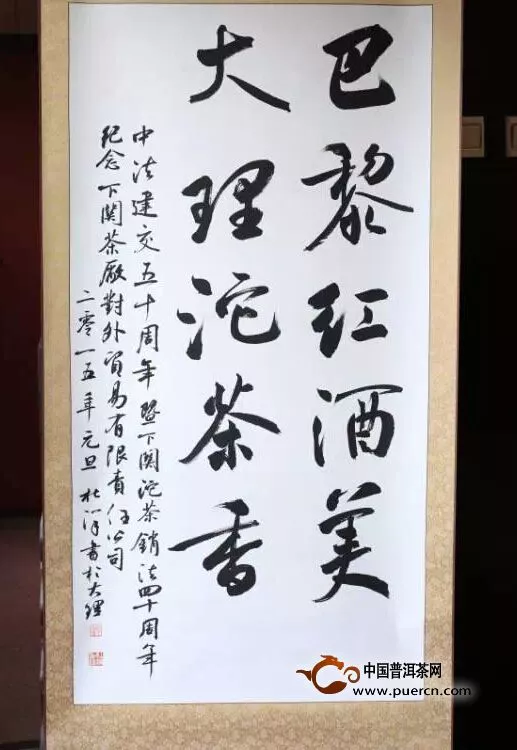 巴黎红酒美
大理沱茶香
中法建交五十周年暨下関沱茶銷法四十周年
纪念 下関茶厰對外貿易有限責任公司
二零一五年元旦 杜洋書於大理
中国普洱茶网
www.puercn.com